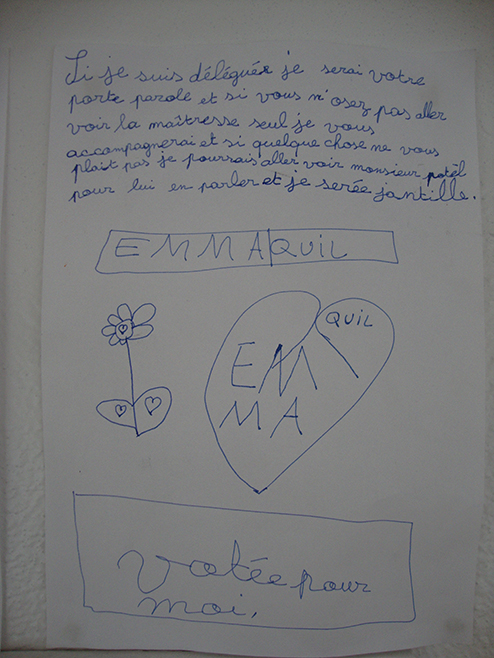 Si je suis déléguée je serai votre
porte parole et si vous n'osez pas aller
voir la maîtresse seul je vous
accompagnerai et si quelque chose ne vous
plait pas je poursais aller voir monsieur patèl
pour lui en parler et je serée jantille.
EMMA QUIL
QUIL
EM
MA
votée pour
moi.